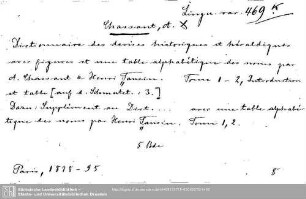 Lingu. var. 469 K
Chassant, A. X
Dictionnaire des devises historiques et héraldiques
avec figures et une table alphabétique des noms par
A. Chassant & Henri Tausin. Tome 1-2, Introduction
et table [auf d. Schmutzt.: 3.]
Dazu: Supplément au Dict. ... avec une table alphabé-
tique des noms par Henri Tausin. Tome 1, 2.
5 Bde
Paris, 1878-95 8